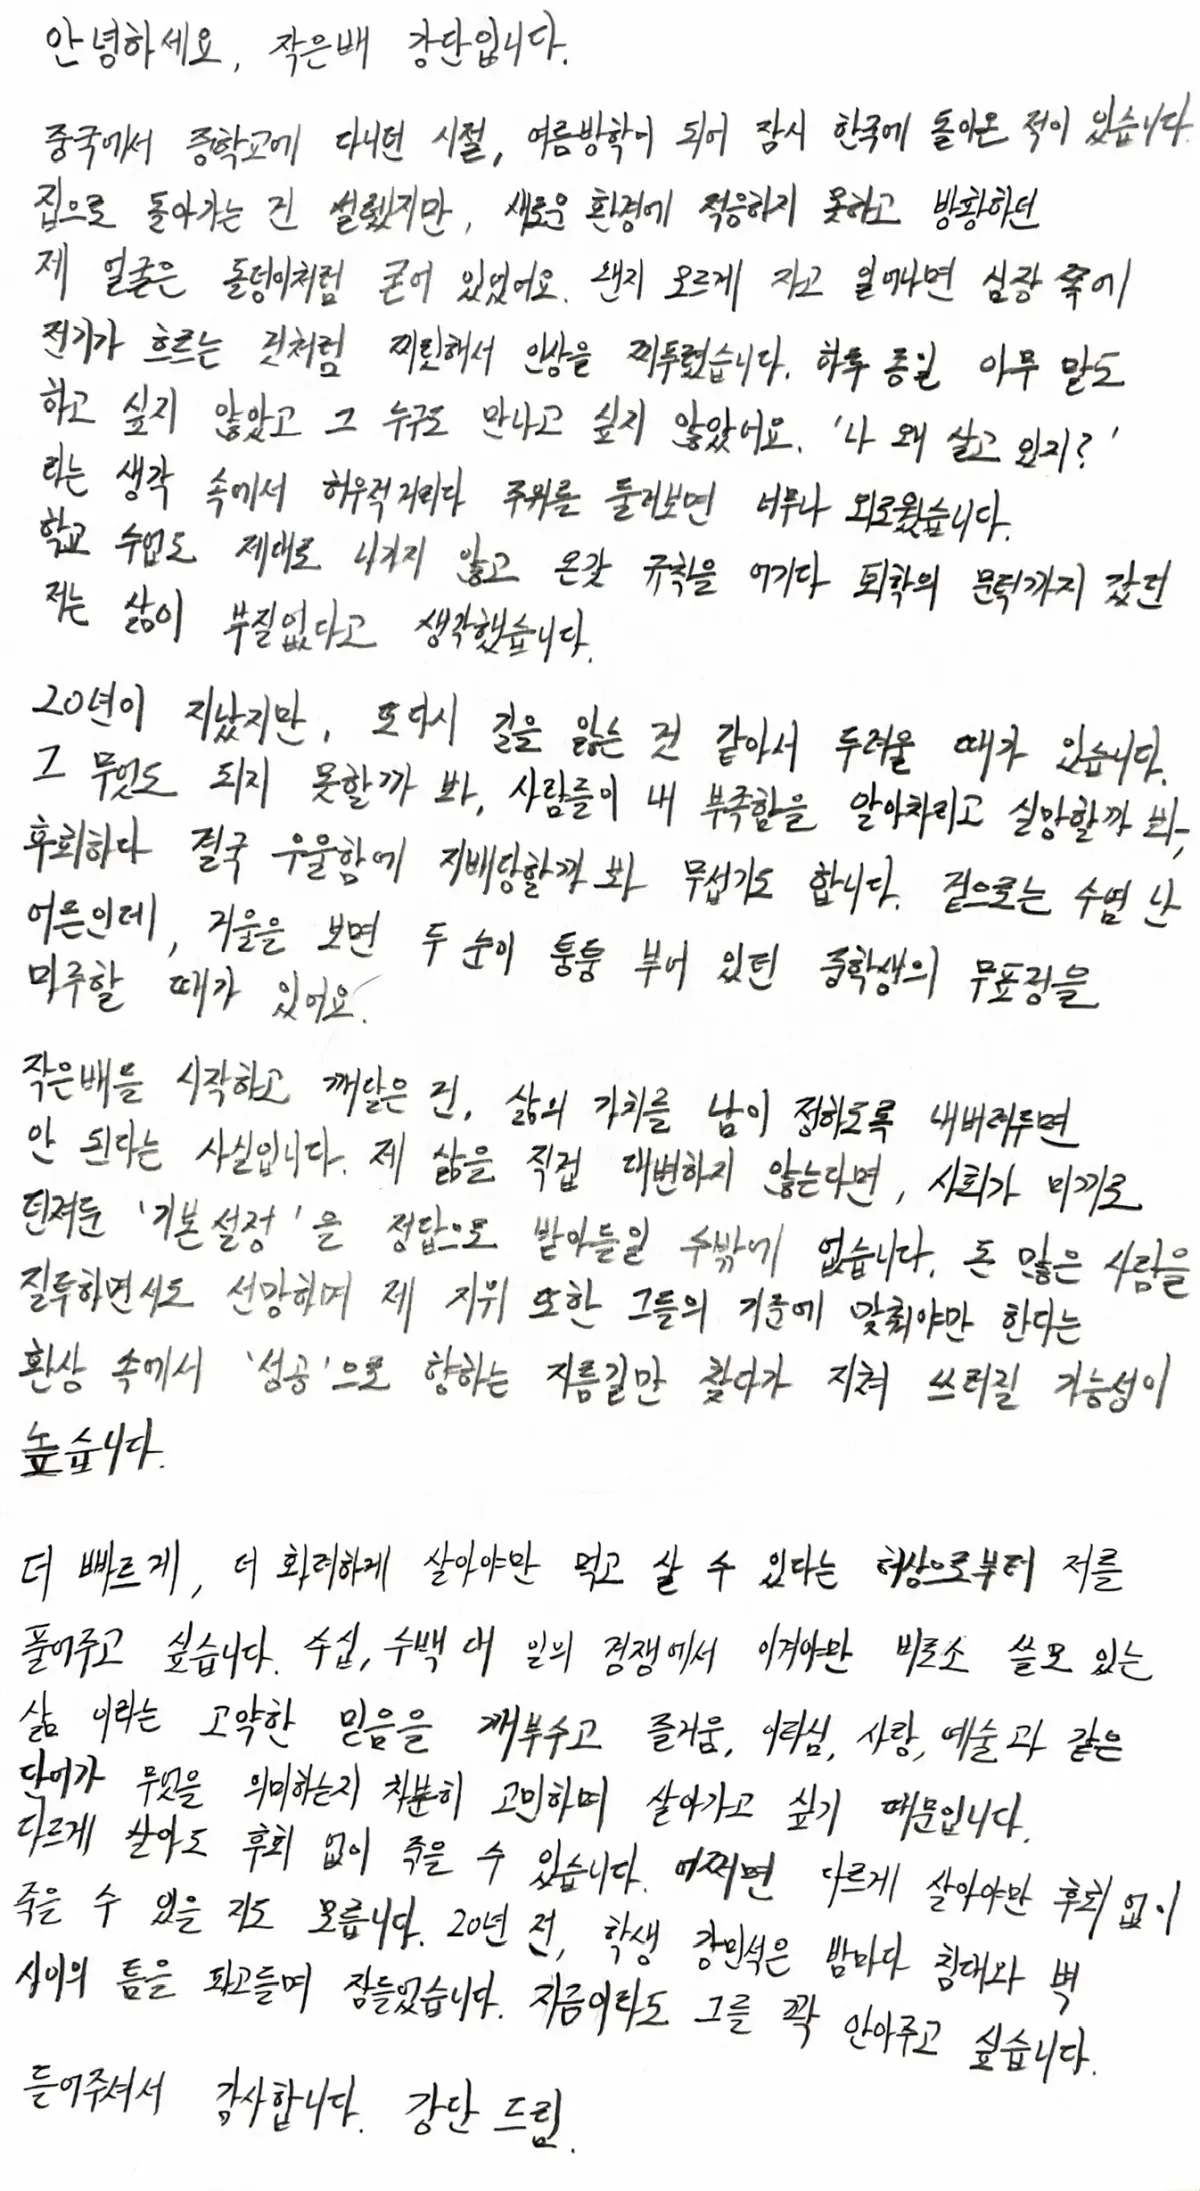 안녕하세요, 작은배 강단입니다.
중국에서 중학교에 다니던 시절, 여름방학이 되어 잠시 한국에 돌아온 적이 있습니다.
집으로 돌아가는 건 설렜지만, 새로운 환경에 적응하지 못하고 방황하던
제 얼굴은 돌덩이처럼 굳어 있었어요. 왠지 모르게 자고 일어나면 심장 쪽에
전기가 흐르는 것처럼 찌릿해서 인상을 찌푸렸습니다. 하루 종일 아무 말도
하고 싶지 않았고 그 누구도 만나고 싶지 않았어요. '나 왜 살고 있지?'
라는 생각 속에서 허우적거리다 주위를 둘러보면 너무나 외로웠습니다.
학교 수업도 제대로 나가지 않고 온갖 규칙을 어기다 퇴학의 문턱까지 갔던
저는 삶이 부질없다고 생각했습니다.
20년이 지났지만, 또다시 길을 잃는 것 같아서 두려울 때가 있습니다.
그 무엇도 되지 못할까 봐, 사람들이 내 부족함을 알아차리고 실망할까 봐,
후회하다 결국 우울함에 지배당할까 봐 무섭기도 합니다. 겉으로는 수염 난
어른인데, 거울을 보면 두 눈이 퉁퉁 부어 있던 중학생의 무표정을
마주할 때가 있어요.
작은배를 시작하고 깨달은 건, 삶의 가치를 남이 정하도록 내버려두면
안 된다는 사실입니다. 제 삶을 직접 대변하지 않는다면, 사회가 미끼로
던져둔 '기본설정'을 정답으로 받아들일 수밖에 없습니다. 돈 많은 사람을
질투하면서도 선망하며 제 지위 또한 그들의 기준에 맞춰야만 한다는
환상 속에서 '성공'으로 향하는 지름길만 찾다가 지쳐 쓰러질 가능성이
높습니다.
더 빠르게, 더 화려하게 살아야만 먹고 살 수 있다는 허상으로부터 저를
풀어주고 싶습니다. 수십, 수백 대 일의 경쟁에서 이겨야만 비로소 쓸모 있는
삶이라는 고약한 믿음을 깨부수고 즐거움, 이타심, 사랑, 예술과 같은
단어가 무엇을 의미하는지 차분히 고민하며 살아가고 싶기 때문입니다.
다르게 살아도 후회 없이 죽을 수 있습니다. 어쩌면 다르게 살아야만 후회 없이
죽을 수 있을 지도 모릅니다. 20년 전, 학생 강민석은 밤마다 침대와 벽
사이의 틈을 파고들며 잠들었습니다. 지금이라도 그를 꽉 안아주고 싶습니다.
들어주셔서 감사합니다. 강단 드림.